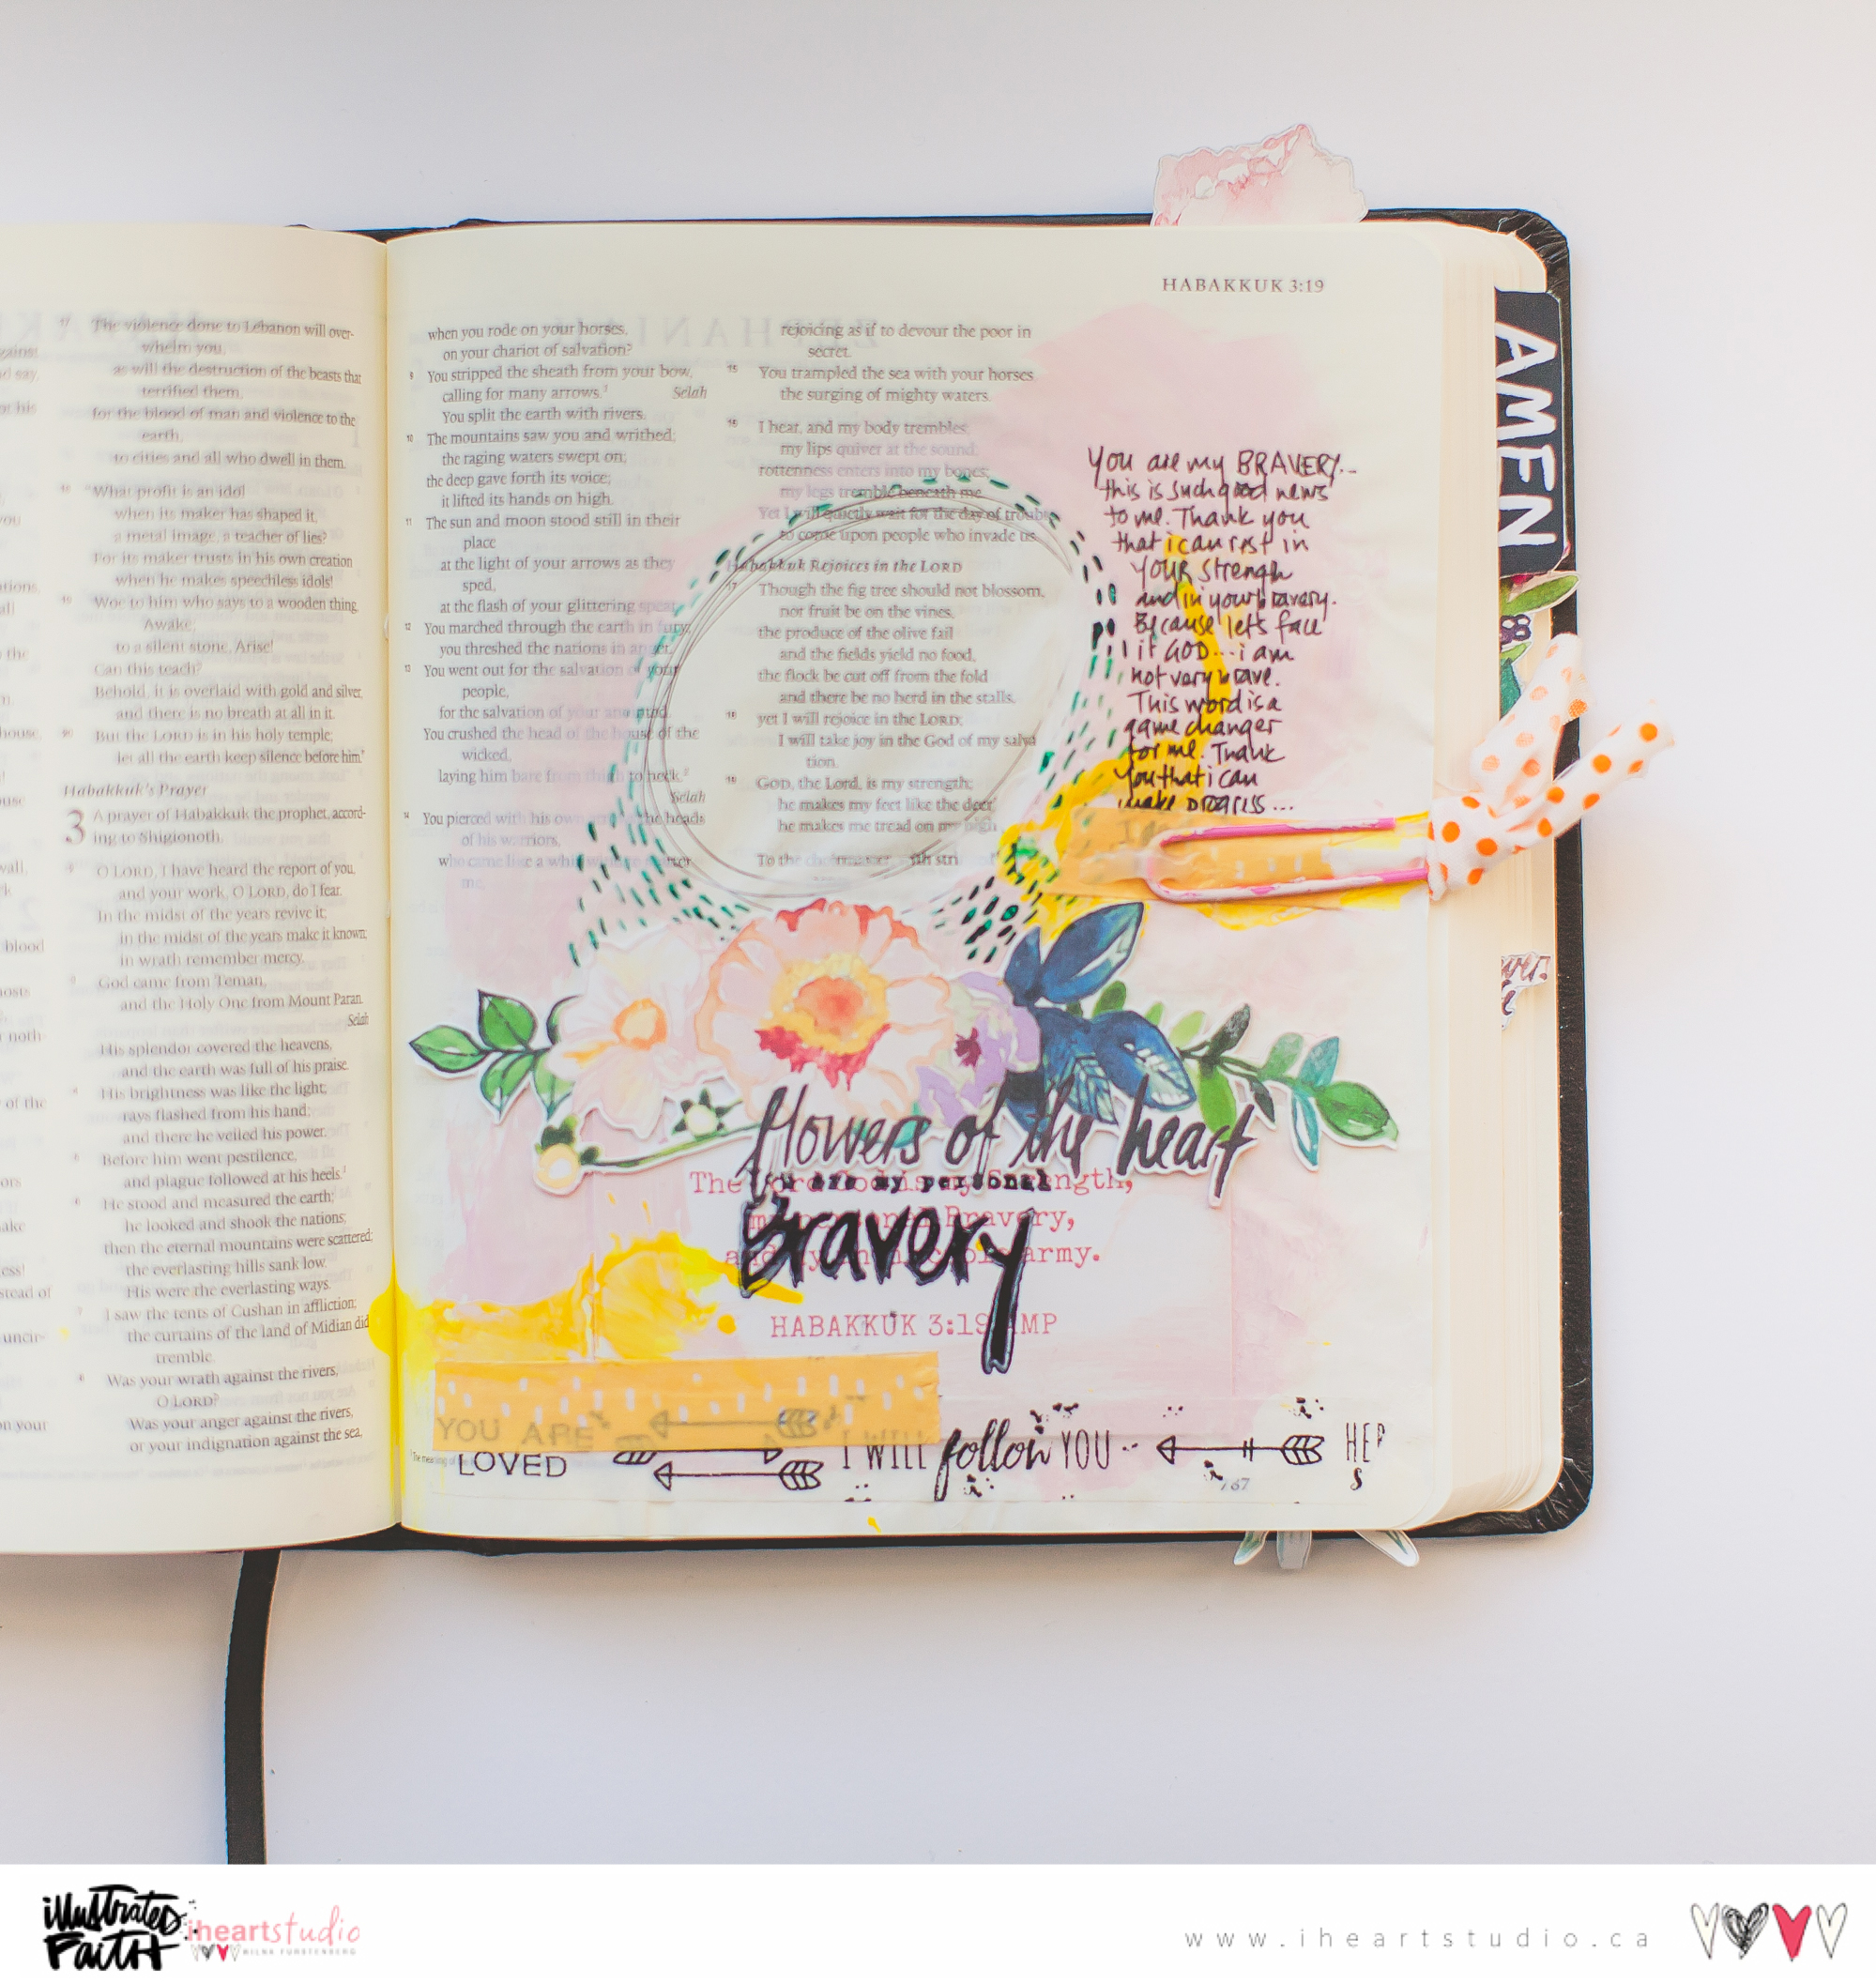 17 The violence done to Lebanon will over-
whelm you,
as will the destruction of the beasts that
terrified them,
for the blood of man and violence to the
earth,
to cities and all who dwell in them.
18 "What profit is an idol
when its maker has shaped it,
a metal image, a teacher of lies?
For its maker trusts in his own creation
when he makes speechless idols!
19 Woe to him who says to a wooden thing,
Awake;
to a silent stone, Arise!
Can this teach?
Behold, it is overlaid with gold and silver,
and there is no breath at all in it.
20 But the LORD is in his holy temple;
let all the earth keep silence before him."
Habakkuk's Prayer
3 A prayer of Habakkuk the prophet, accord-
ing to Shigionoth.
2 O LORD, I have heard the report of you,
and your work, O LORD, do I fear.
In the midst of the years revive it;
in the midst of the years make it known;
in wrath remember mercy.
3 God came from Teman,
and the Holy One from Mount Paran.
Selah
His splendor covered the heavens,
and the earth was full of his praise.
4 His brightness was like the light;
rays flashed from his hand;
and there he veiled his power.
5 Before him went pestilence,
and plague followed at his heels.
6 He stood and measured the earth;
he looked and shook the nations;
then the eternal mountains were scattered;
the everlasting hills sank low.
His were the everlasting ways.
7 I saw the tents of Cushan in affliction;
the curtains of the land of Midian did
tremble.
8 Was your wrath against the rivers,
O LORD?
Was your anger against the rivers,
or your indignation against the sea,
HABAKKUK 3:19
when you rode on your horses,
on your chariot of salvation?
9 You stripped the sheath from your bow,
calling for many arrows. Selah
You split the earth with rivers.
10 The mountains saw you and writhed;
the raging waters swept on;
the deep gave forth its voice;
it lifted its hands on high.
11 The sun and moon stood still in their
place
at the light of your arrows as they
sped,
at the flash of your glittering spear.
12 You marched through the earth in fury;
you threshed the nations in anger.
13 You went out for the salvation of your
people,
for the salvation of your anointed.
You crushed the head of the house of the
wicked,
laying him bare from thigh to neck.
Selah
14 You pierced with his own arrows the heads
of his warriors,
who came like a whirlwind to scatter
me,
rejoicing as if to devour the poor in
secret.
15 You trampled the sea with your horses,
the surging of mighty waters.
16 I hear, and my body trembles;
my lips quiver at the sound;
rottenness enters into my bones;
my legs tremble beneath me.
Yet I will quietly wait for the day of trouble
to come upon people who invade us.
Habakkuk Rejoices in the LORD
17 Though the fig tree should not blossom,
nor fruit be on the vines,
the produce of the olive fail
and the fields yield no food,
the flock be cut off from the fold
and there be no herd in the stalls,
18 yet I will rejoice in the LORD;
I will take joy in the God of my salva
tion.
19 GOD, the Lord, is my strength;
he makes my feet like the deer's;
he makes me tread on my high
To the choirmaster with stri
You are my BRAVERY...
this is such good news
to me. Thank you
that i can rest in
YOUR strength
and in your bravery.
Because let's face
it GOD... i am
not very brave.
This word is a
game changer
for me. Thank
you that i can
make progress...
AMEN
flowers of the heart
The Lord God is my Strength,
my personal
my personal Bravery,
Bravery
and my invincible army.
HABAKKUK 3:19 AMP
YOU ARE
LOVED
I WILL follow YOU
767
illustrated
FAITH
iheartstudio
WILNA FURSTENBERG
www.iheartstudio.ca